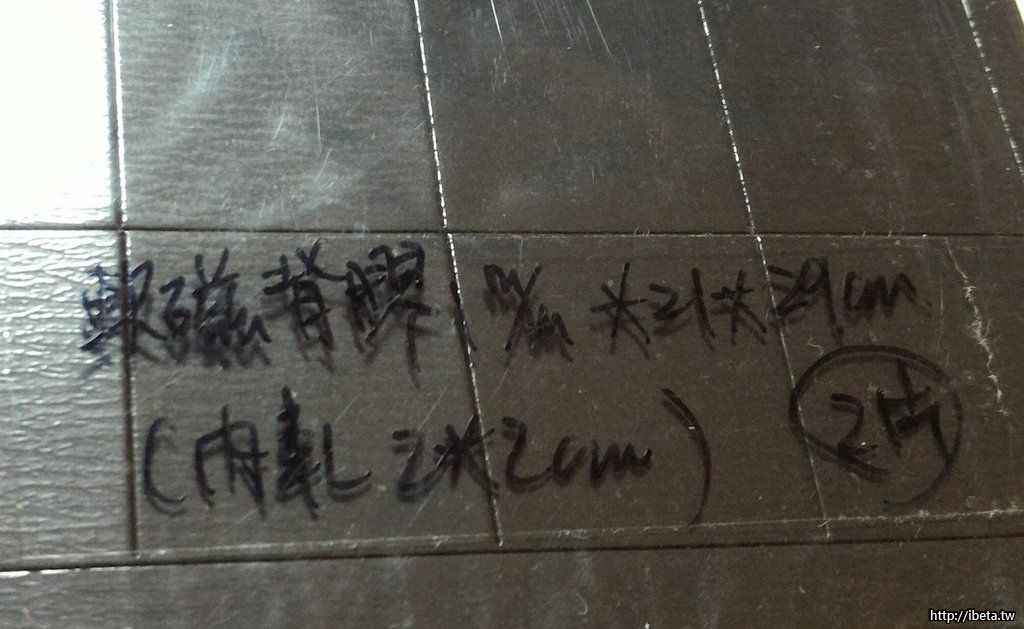 軟磁背膠 1m/m *21*29cm
(內軋 2*2cm) 2片
http://ibeta.tw